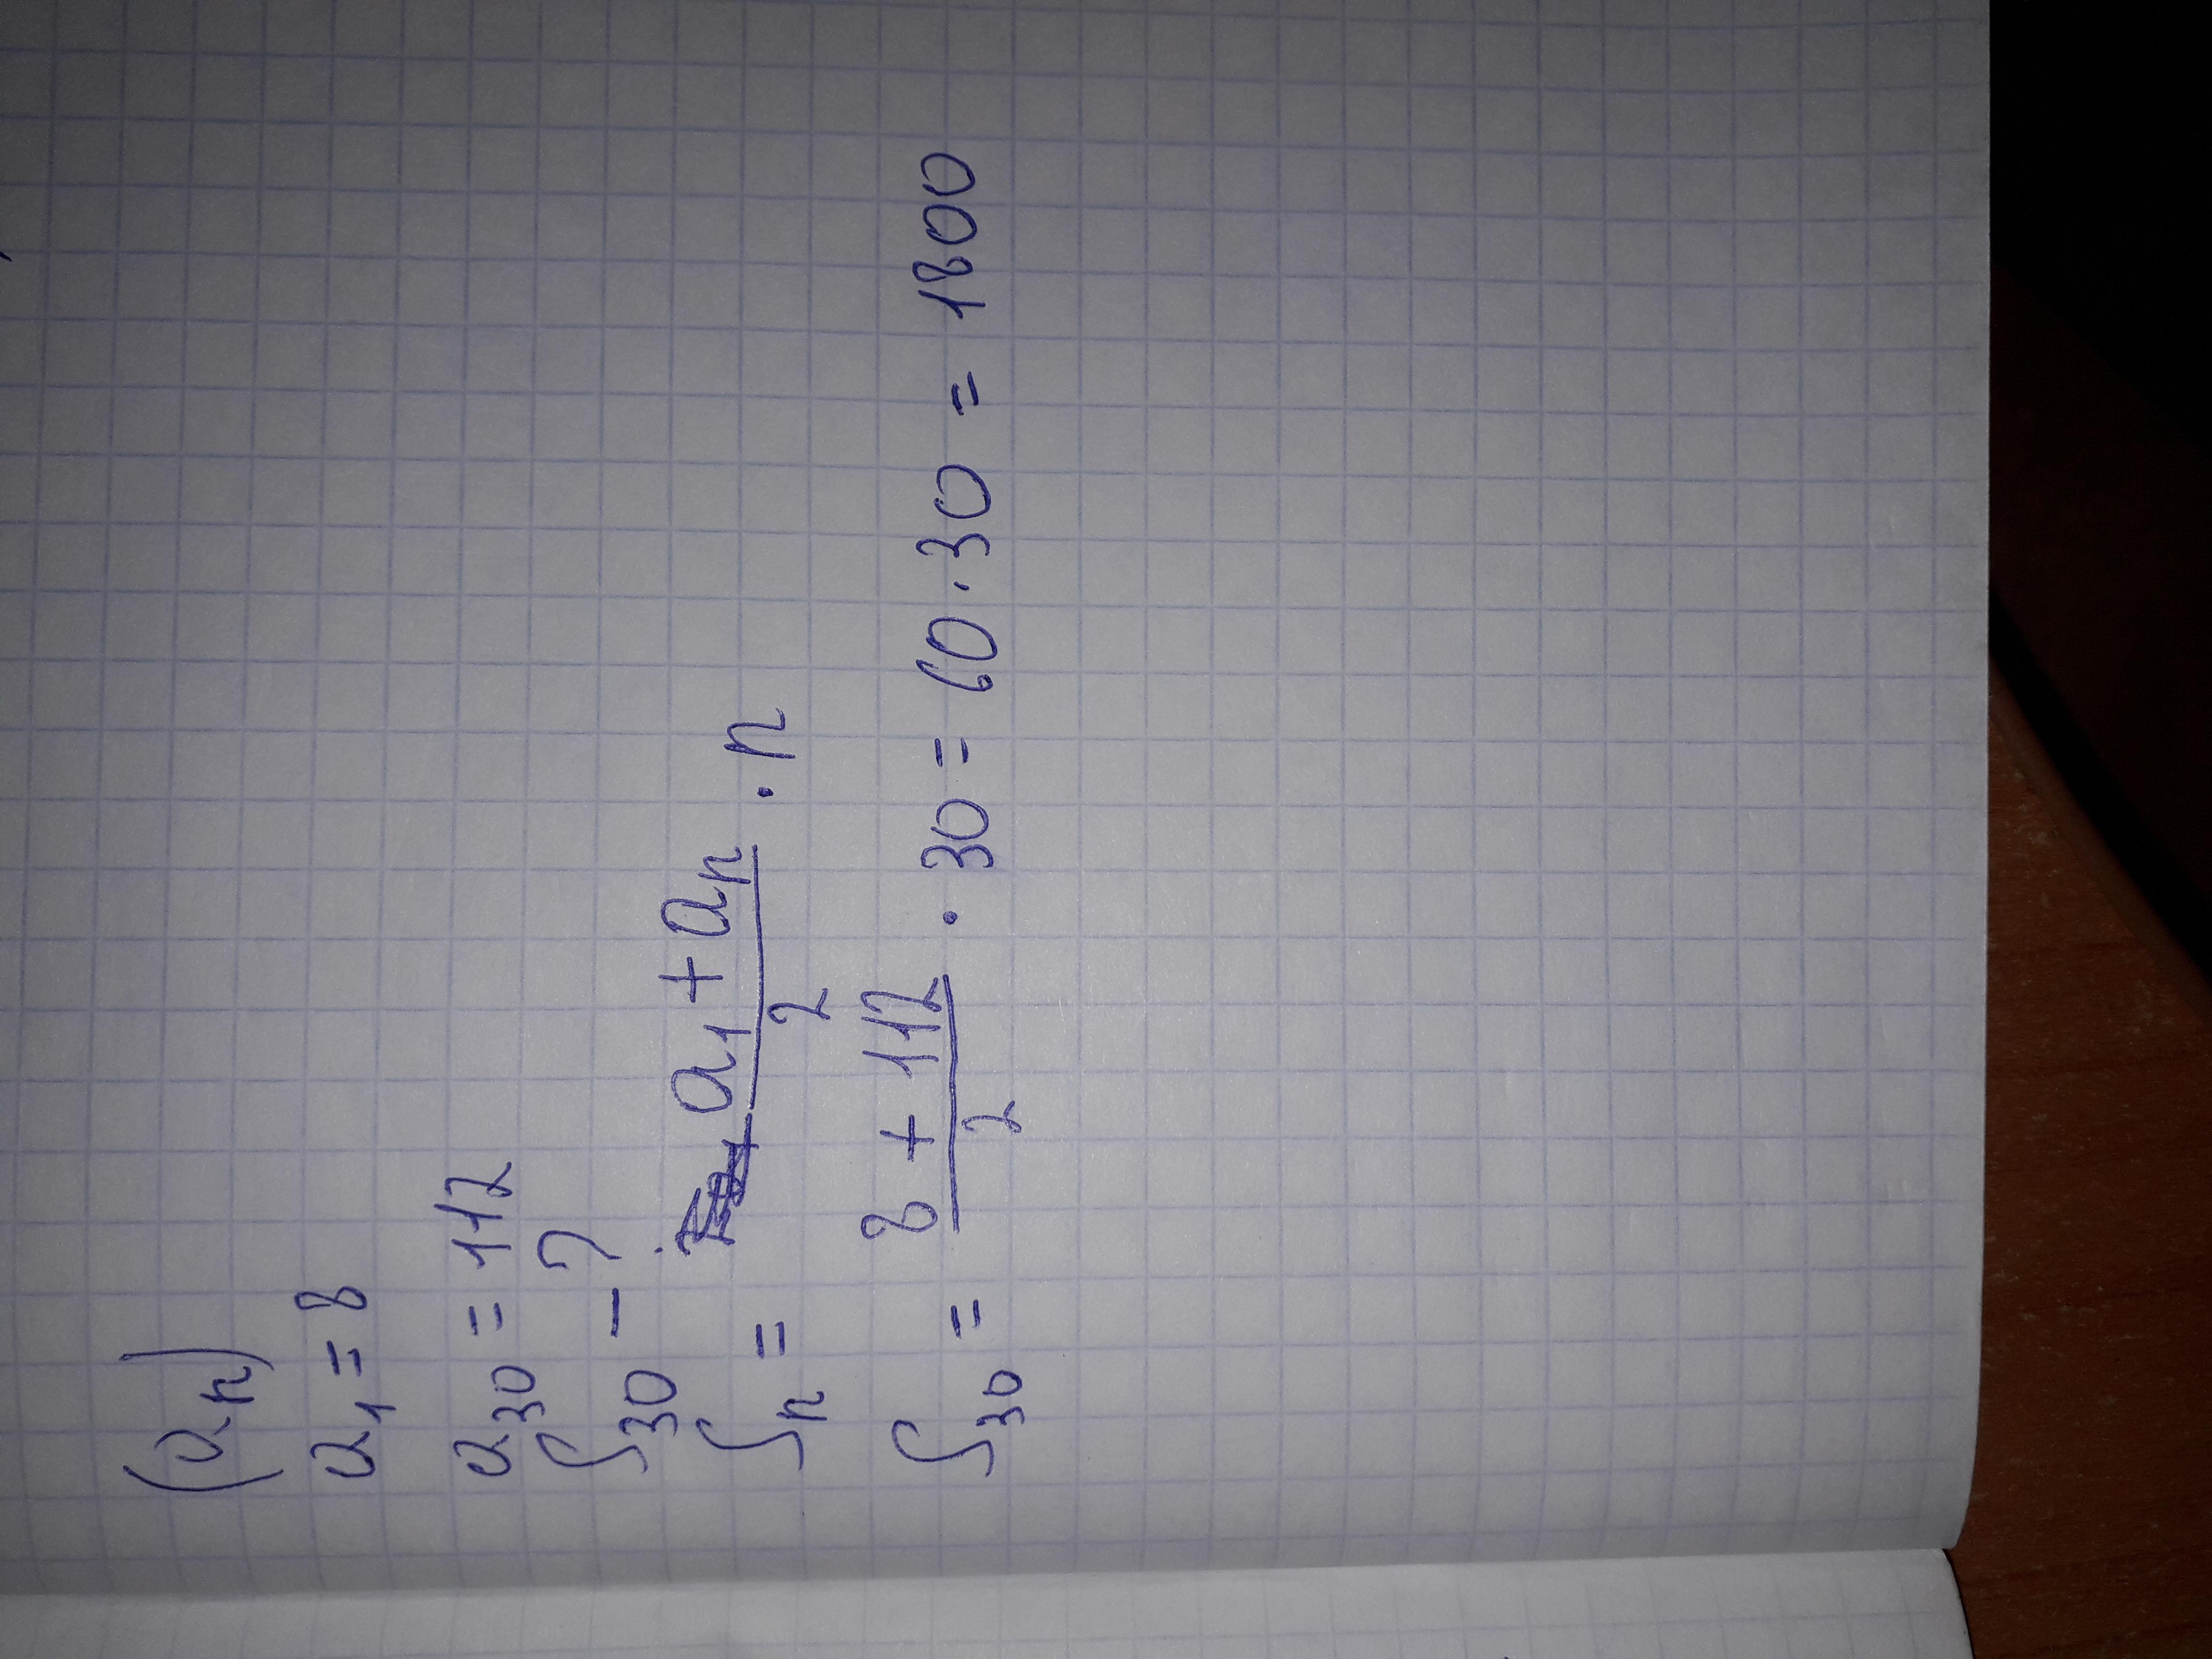 (aₙ)
a₁ = 8
a₃₀ = 112
S₃₀ - ?
Sₙ = (a₁ + aₙ)/2 · n
S₃₀ = (8 + 112)/2 · 30 = 60 · 30 = 1800